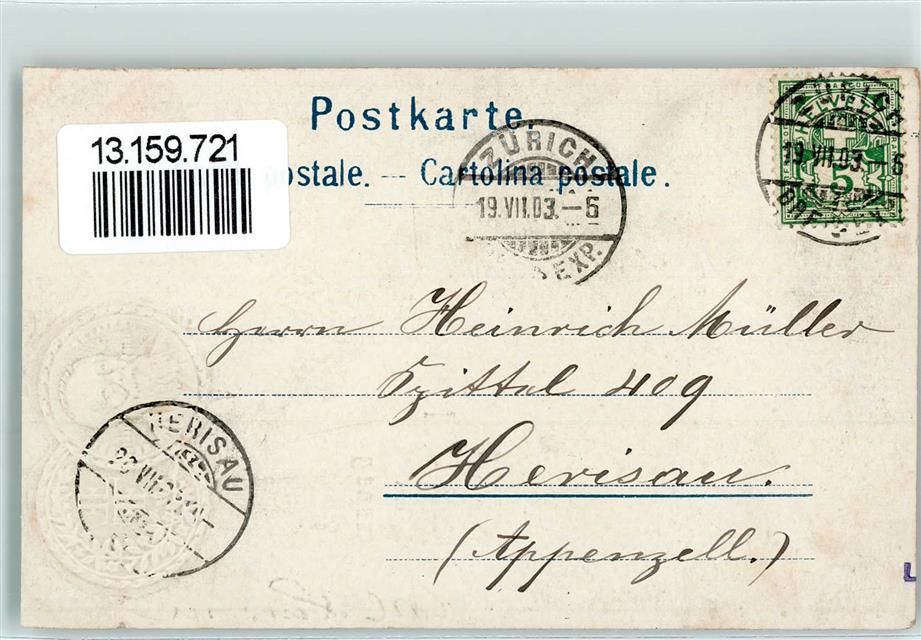 Postkarte.
13.159.721
postale. — Cartolina postale.
ZÜRICH
19.VII.03.–6
EXP.
HELVETIA
19.VII.03.–6
5
Herrn Heinrich Müller
Spittel 409
Herisau.
(Appenzell.)
HERISAU
L